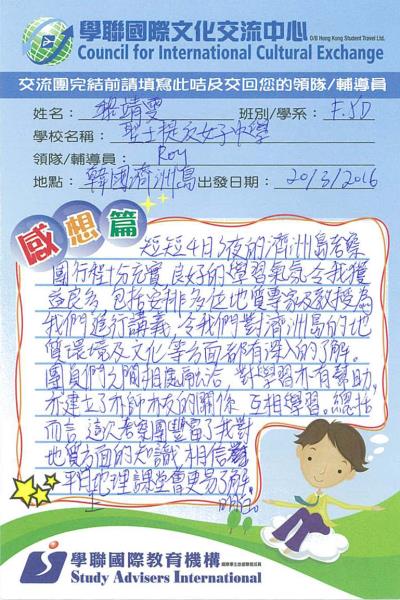 學聯國際文化交流中心 O/B Hong Kong Student Travel Ltd.
Council for International Cultural Exchange
交流團完結前請填寫此咭及交回您的領隊/輔導員
姓名: 靖雯 班別/學系: F.5D
學校名稱: 聖士提反女子中學
領隊/輔導員: Roy
地點: 韓國濟洲島 出發日期: 20/3/2016
感想篇
短短4日3夜的濟洲島考察
團行程十分充實,良好的學習氣氛令我獲
益良多,包括安排多位地質專家及教授為
我們進行講義,令我們對濟洲島的地
質環境及文化等方面都有深入的了解。
團員們之間相處融洽,對學習亦有幫助,
亦建立了亦師亦友的關係,互相學習。總括
而言,這次考察團豐富了我對
地質方面的知識,相信
平日地理課堂會更易了解。
上 明白。
學聯國際教育機構
Study Advisers International